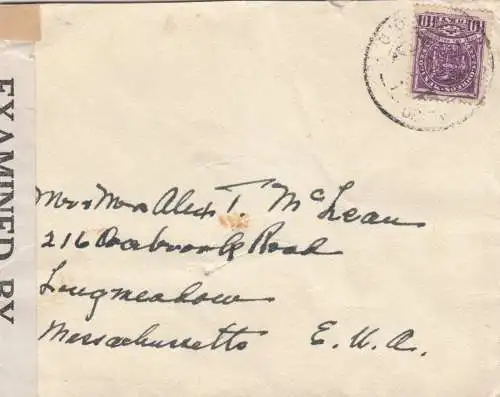 EXAMINED BY
Mr & Mrs Alex T. McLean
216 Road
Longmeadow
Massachusetts E. U. A.